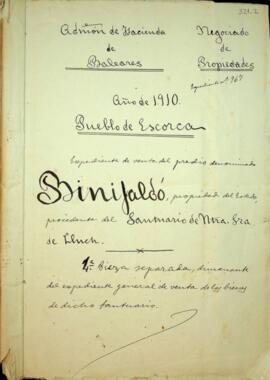 321.2
Admón de Hacienda
de
Baleares
Negociado
de
Propiedades
Expediente nº 967
Año de 1910.
Pueblo de Escorca
Expediente de venta del predio denominado
Binifaldó, propiedad del Estado,
procedente del Santuario de Ntra. Sra.
de Lluch.
1ª Pieza separada, dimanante
del expediente general de venta de los bienes
de dicho Santuario.